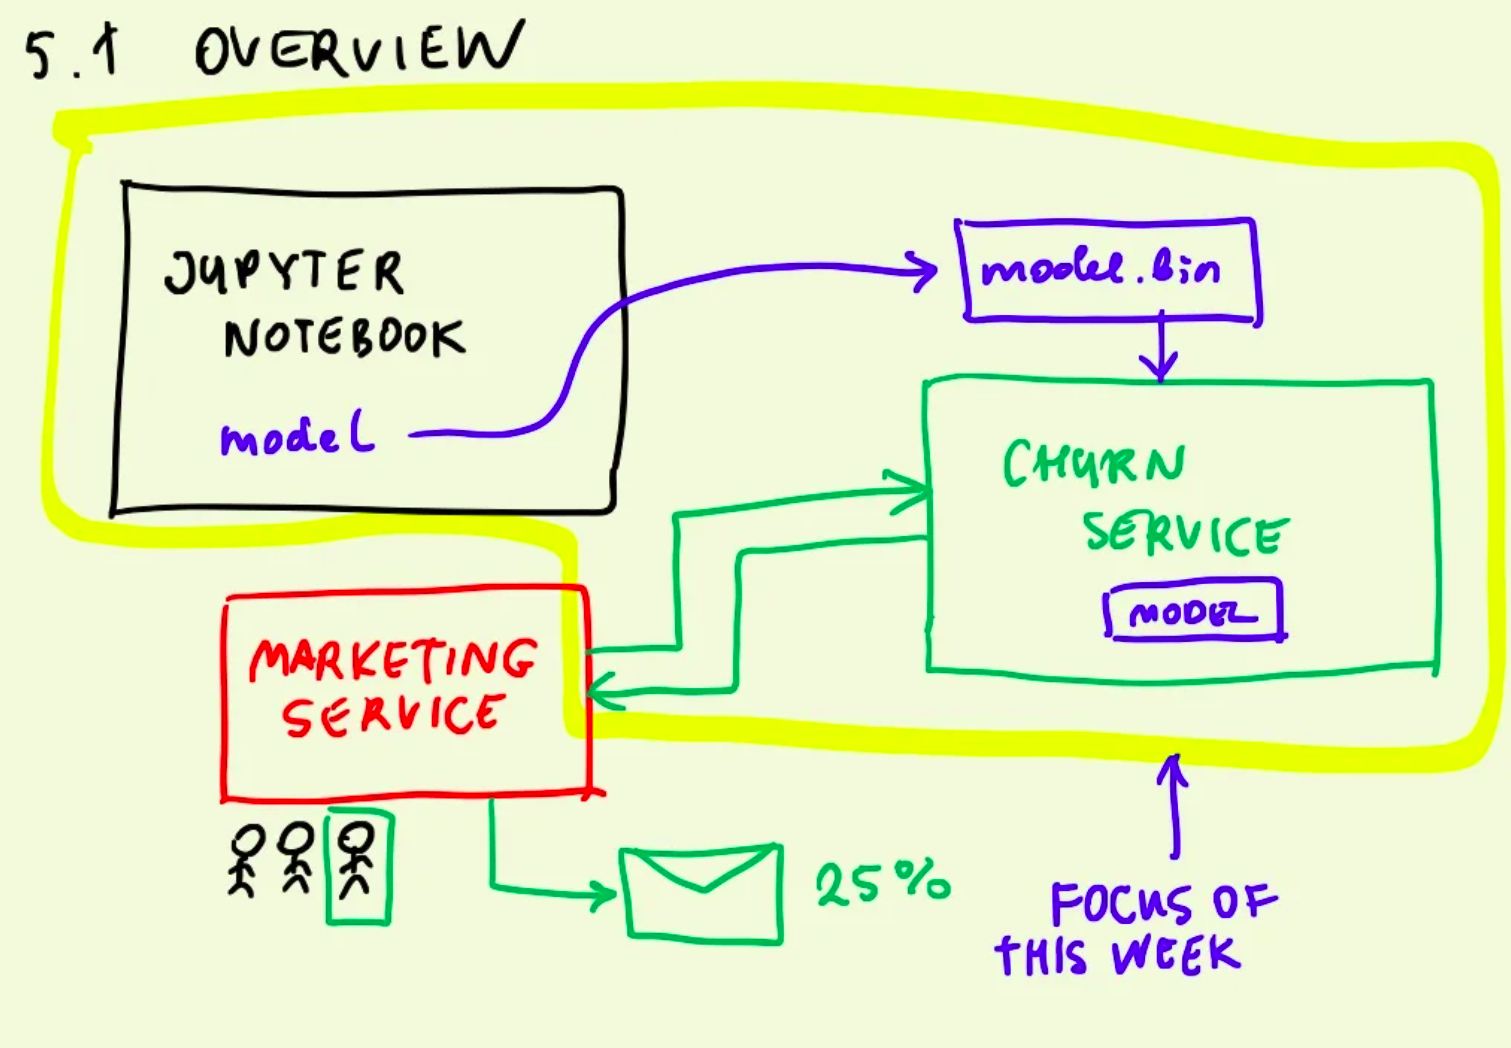 5.1 OVERVIEW
JUPYTER
NOTEBOOK
model
model.bin
CHURN
SERVICE
MODEL
MARKETING
SERVICE
25%
FOCUS OF
THIS WEEK